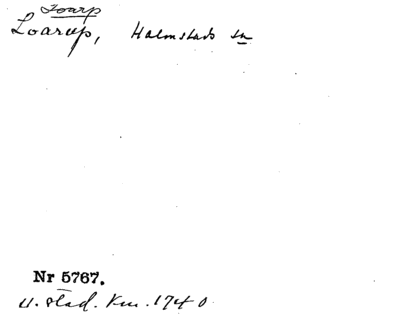 Loarp
Loarup, Halmstads sn
Nr 5767.
U. stad. Km. 1740